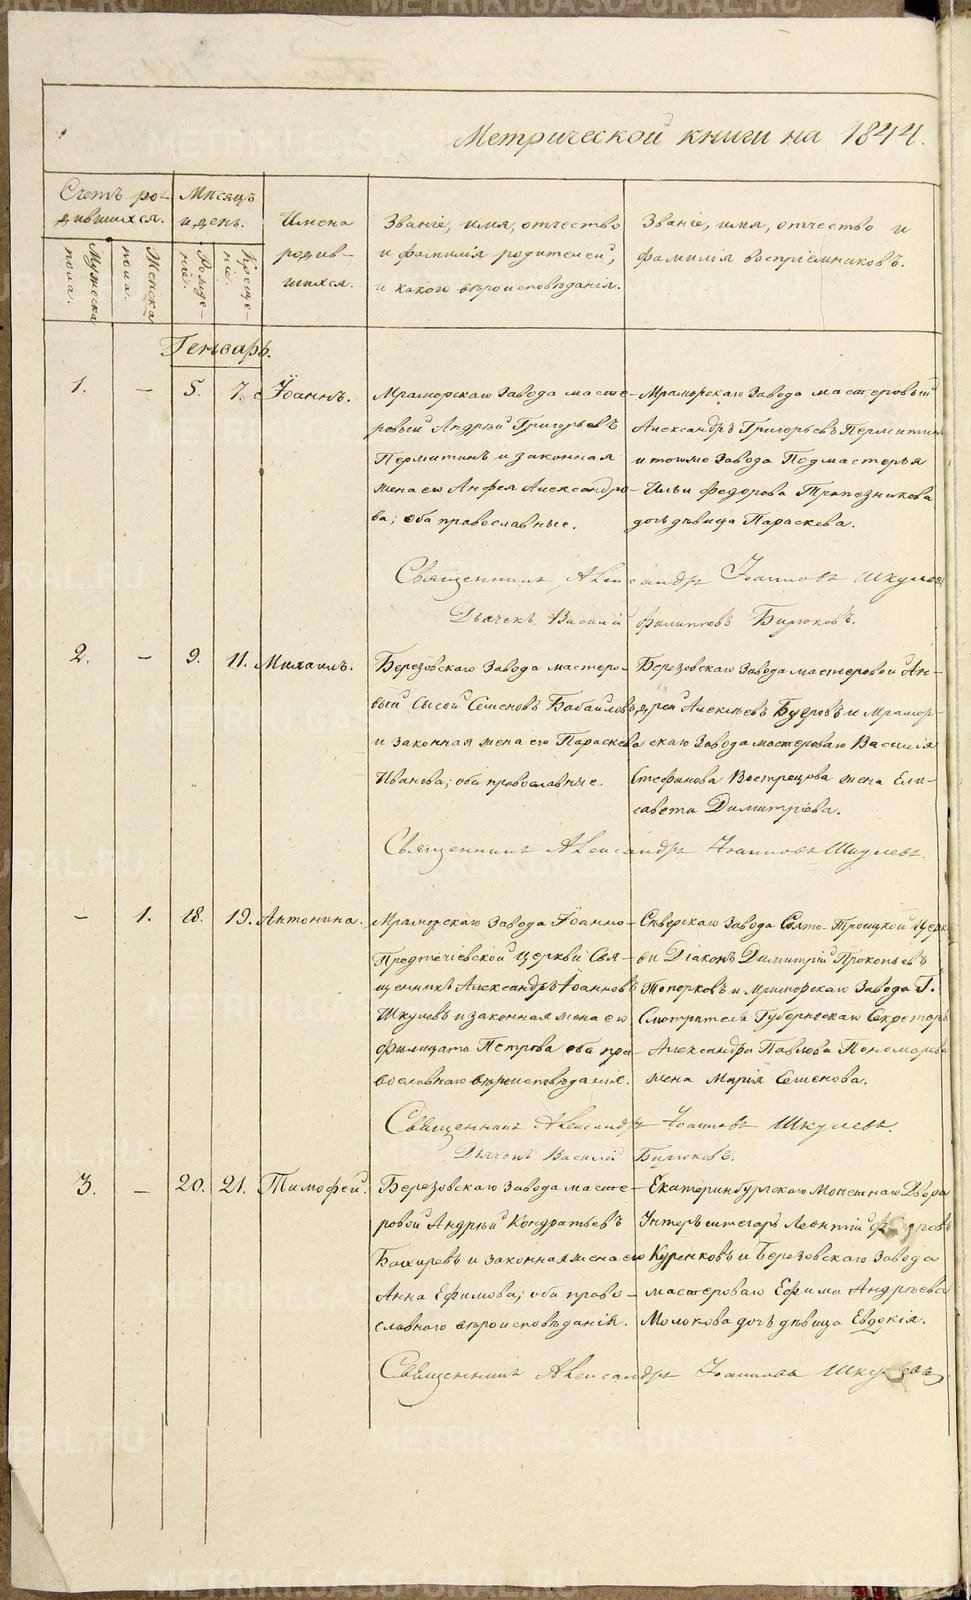 Метрической книги на 1844.
Счетъ ро-
дившихся.
Мѣсяцъ
и день.
Имена
родив-
шихся.
Званіе, имя, отчество
и фамилія родителей,
и какого вѣроисповѣданія.
Званіе, имя, отчество и
фамилія воспріемниковъ.
Мужеска
пола.
Женска
пола.
Рожде-
ніе.
Креще-
ніе.
Генварь.
1. — 5. 7. Іоаннъ.
Мраморскаго Завода масте-
ровый Андрей Григорьевъ
Пермитинъ и законная
жена его Анфея Александро-
ва; оба православные.
Мраморскаго Завода мастеровый
Александръ Григорьевъ Пермитинъ
и тогоже Завода Подмастерья
Ильи Федорова Трапезникова
дочь дѣвица Параскева.
Священникъ Александръ Іоанновъ Шкулевъ
Дьячекъ Василій Филиповъ Бирюковъ.
2. — 9. 11. Михаилъ.
Березовскаго Завода мастеро-
вый Сысой Семеновъ Бабаиловъ
и законная жена его Параскева
Иванова; оба православные.
Березовскаго Завода мастеровой Ан-
дрей Алексѣевъ и Мрамор-
скаго Завода мастероваго Василія
Стефанова Вострецова жена Ели-
савета Димитріева.
Священникъ Александръ Іоанновъ Шкулевъ.
— 1. 18. 19. Антонина.
Мраморскаго Завода Іоанно-
Предтечіевской церкви Свя-
щенникъ Александръ Іоанновъ
Шкулевъ и законная жена его
Филицата Петрова оба пра-
вославнаго вѣроисповѣданія.
Сѣверскаго Завода Свято-Троицкой Церк-
ви Діаконъ Димитрій Прокопьевъ
Топорковъ и Мраморскаго Завода Г.
Смотрителя Губернскаго Секретаря
Александра Павлова Пономарева
жена Марія Семенова.
Священникъ Александръ Іоанновъ Шкулевъ.
Дьячекъ Василій Бирюковъ.
3. — 20. 21. Тимофей.
Березовскаго Завода масте-
ровой Андрей Кондратьевъ
Бахиревъ и законная жена его
Анна Ефимова; оба право-
славнаго вѣроисповѣданія.
Екатеринбургскаго Монетнаго Двора
Унтеръ штегарь Леонтій
Куренковъ и Березовскаго Завода
мастероваго Ефима Андреева
Молокова дочь дѣвица Евдокія.
Священникъ Александръ Іоанновъ Шкулевъ
METRIKI.GASO-URAL.RU